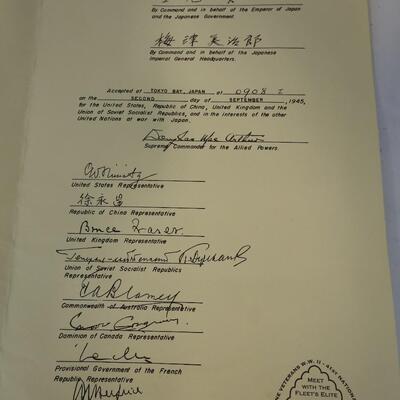 By Command and in behalf of the Emperor of Japan
and the Japanese Government.
梅津美治郎
By Command and in behalf of the Japanese
Imperial General Headquarters.
Accepted at TOKYO BAY, JAPAN at 0908 I
on the SECOND day of SEPTEMBER, 1945,
for the United States, Republic of China, United Kingdom and the
Union of Soviet Socialist Republics, and in the interests of the other
United Nations at war with Japan.
Douglas MacArthur
Supreme Commander for the Allied Powers.
C.W. Nimitz
United States Representative
徐永昌
Republic of China Representative
Bruce Fraser
United Kingdom Representative
Union of Soviet Socialist Republics
Representative
T.A. Blamey
Commonwealth of Australia Representative
Dominion of Canada Representative
Provisional Government of the French
Republic Representative
VETERANS W.W. II - 41ST NATIONAL
MEET WITH
THE
FLEET'S ELITE